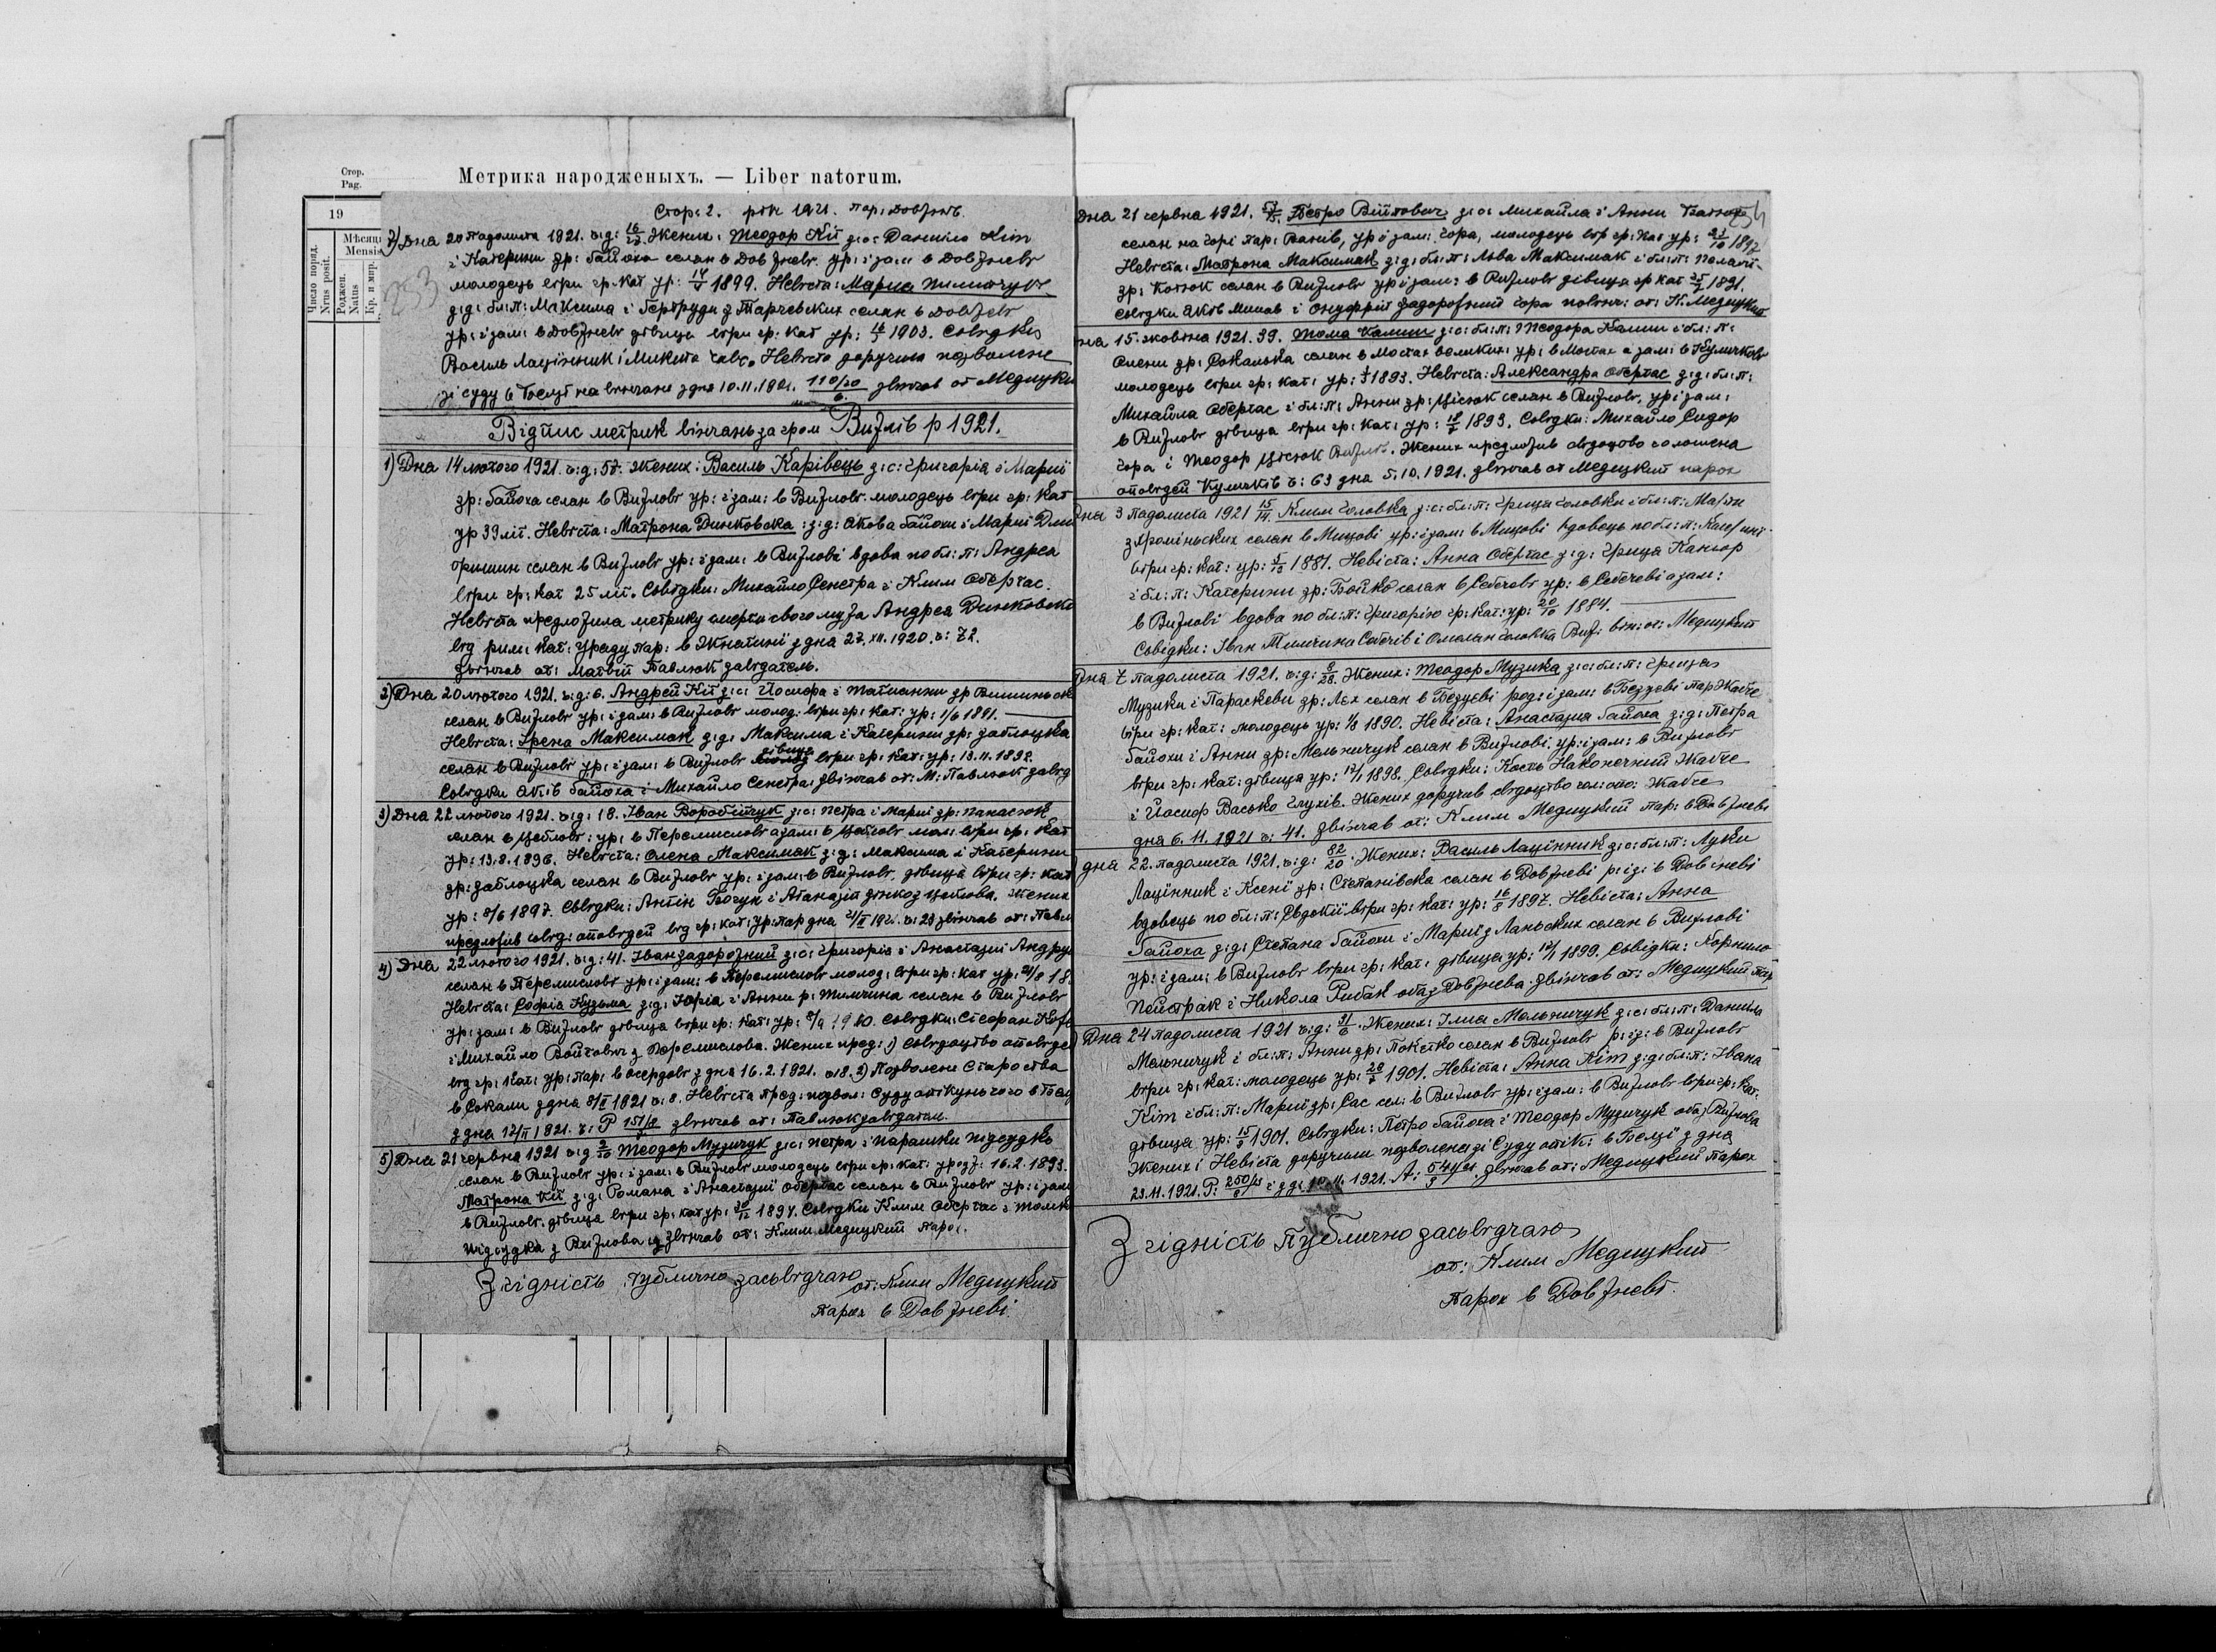 Стор.
Pag.
Метрика народженыхъ. — Liber natorum.
19
Число поряд.
Nrus posit.
Мѣсяць
Mensis
Роджен.
Natus
Кр. и мир.
253
Стор: 2. рік 1921. пар: Довжнѣв
7) Дна 20 падолиста 1921. ч: д: 16/27. Жених: Теодор Кіт з: с: Данила Кіт
і Катерини зр: Байоха селан в Довжневі ур: і зам: в Довжневі
молодець віри гр: кат ур: 1899. Невіста: Мариа
з: д: бл: п: Максима і Гертруди з Тарчевских селан в Довжневі
ур: і зам: в Довжневі дівица віри гр: кат ур: 1903. Свідки
Василь Лацінник і Микита Невіста доручила позволене
зі суду в Белзі на вінчане з дна 10.11.1921. 110/20 6. звінчав от Медицки
Відпис метрик вінчань за гром Вижлів р 1921.
1) Дна 14 лютого 1921. ч: д: 57. Жених: Василь Карівець з: с: Григоріа і Марії
зр: Байоха селан в Вижлові ур: і зам: в Вижлові. молодець віри гр: кат
ур 39 літ. Невіста: Матрона Динковска: з: д: Акова Байохи і Марії
селан в Вижлові ур: і зам: в Вижлові вдова по бл: п: Андреа
віри гр: кат 25 літ. Свідки: Михайло Сенетра і Клим Обертас.
Невіста предложила метрику смерти свого мужа Андреа Динковск
від рим: кат: Урядy пар: в Жнатині з дна 27.XII.1920. ч: 72.
Звінчав от: Матвій Павлюк завідатель.
2) Дна 20 лютого 1921. ч: д: 6. Андрей Кіт з: с: Йосифа і Татианни зр
селан в Вижлові ур: і зам: в Вижлові молод: віри гр: кат: ур: 1/6 1891.
Невіста: Ірена Максимак з: д: Максима і Катерини зр: Заблоцка
селан в Вижлові ур: і зам: в Вижлові дівица віри гр: кат: ур: 13.11.1892.
Свідки Аків Байоха і Михайло Сенетра: Звінчав от: М: Павлюк завід
3) Дна 22 лютого 1921. ч: д: 18. Іван Воробійчук з: с: Петра і Марії зр: Панасюк
селан в Цеблові: ур: в Перемислові а зам: в Цеблові мол: віри гр: кат
ур: 13.8.1896. Невіста: Олена Максимак з: д: Максима і Катерини
зр: Заблоцка селан в Вижлові ур: і зам: в Вижлові, дівица віри гр: кат
ур: 8/6 1897. Свідки: Антін і Атаназій з Цеблова. Жених
предложив свід: оповідей від гр: кат: ур: пар дна 21/II 1921. ч: 23 звінчав от: Павл
4) Дна 22 лютого 1921. ч: д: 41. Іван Задорожний з: с: Григоріа і Анастазиі Андру
селан в Перемислові ур: і зам: в Перемислові молод: віри гр: кат ур:
Невіста: Софіа Кузьма з: д: Юріа і Анни р: Тимчина селан в Вижлові
ур: зам: в Вижлові дівица віри гр: кат: ур: Свідки: Стефан
і Михайло Войтович з Перемислова. Жених пред: 1) Свідоцтво оповіде
від гр: кат: ур: пар: в Осердові з дна 16.2.1921. ч18. 2) Позволене Староства
в Сокали з дна 8/II 1921 ч: 8. Невіста пред: позвол: Суду опікунчого в Бел
з дна 12/II 1921. ч: Р звінчав от: Павлюк завідатель.
5) Дна 21 червна 1921 ч: д Теодор Музичук з: с: Петра і Парашки Підсудко
селан в Вижлові ур: і зам: в Вижлові молодець віри гр: кат: 16.2.1893.
Матрона Кіт з: д: Романа і Анастазиі Обертас селан в Вижлові ур: і зам
в Вижлові. дівица віри гр: кат ур: 1894. Свідки Клим Обертас і
Підсудка з Вижлова звінчав от: Клим Медицкий паро.
Згідність публично засьвідчаю от: Клим Медицкий
парох в Довжневі.
Дна 21 червна 1921. Петро Війтович з: с: Михайла і Анни
селан на Горі пар: Ванів, ур і зам: Гора, молодець вір гр: кат ур: 21/10 1892
Невіста: Матрона Максимак з: д: бл: п: Льва Максимак і бл: п: Пелагії
зр: Котюк селан в Вижлові ур і зам: в Вижлові дівица гр кат 1891.
Свідки Аків і Онуфрій Задорожний Гора повінч: от: К. Медицкий
15. жовтна 1921. 39. Тома Калиш з: с: бл: п: Теодора Калиш і бл: п:
Олени зр: Сокальска селан в Мостах великих: ур: в Мостах а зам: в Куличкові
молодець віри гр: кат: ур: 1893. Невіста: Александра Обертас з: д: бл: п:
Михайла Обертас і бл: п: Анни зр: Цісюк селан в Вижлові, ур і зам:
в Вижлові дівица віри гр: кат: ур: 1893. Свідки: Михайло Сидор
Гора і Теодор Цісюк Вижлів. Жених предложив свідоцтво голошена
оповідей Куличків ч: 63 дна 5.10.1921. звінчав от Медецкий парох
3 падолиста 1921 15/VII. Клим Головка з: с: бл: п: Грицка Головки і бл: п: Марти
з Яроміньских селан в Мицові ур: і зам: в Мицові вдовець по бл: п:
віри гр: кат: ур: 1881. Невіста: Анна Обертас з: д: Грица Каньор
і бл: п: Катерини зр: Бойко селан в Себечеві ур: в Себечеві а зам:
в Вижлові вдова по бл: п: Григорію гр: кат: ур: 20/10 1884.
Сьвідки: Іван Тимчина Себечів і Омелан Головка Виж: він: от: Медицкий
Дна 7 падолиста 1921. ч: д: 9/28. Жених: Теодор Музика з: с: бл: п: Грица
Музики і Параскеви зр: Лех селан в Безуеві род: і зам: в Безуеві пар Жабче
віри гр: кат: молодець ур: 1/8 1890. Невіста: Анастазиа Байоха з: д: Петра
Байохи і Анни зр: Мельничук селан в Вижлові, ур: і зам: в Вижлові
віри гр: кат: дівица ур: 12/1 1898. Свідки: Кость Наконечний Жабче
і Йосиф Васько Глухів. Жених доручив свідоцтво гол: опо: Жабче
дна 6.11.1921 ч: 41. Звінчав от: Клим Медицкий пар: в Довжневі
дна 22. падолиста 1921. ч: д: 82/20. Жених: Василь Лацінник з: с: бл: п: Луки
Лацінник і Ксені зр: Степанівска селан в Довжневі р: і з: в Довжневі
вдовець по бл: п: Евдокії віри гр: кат: ур: 16/8 1897. Невіста: Анна
Байоха з: д: Степана Байохи і Марії з Ланьских селан в Вижлові
ур: і зам: в Вижлові віри гр: кат: дівица ур: 12/1 1899. Сьвідки: Корнило
Пейстрак і Никола Рибак оба з Довжнева. Звінчав от: Медицкий пар
Дна 24 падолиста 1921 ч: д: 31/6. Жених: Ілиа Мельничук з: с: бл: п: Данила
Мельничук і бл: п: Анни зр: селан в Вижлові р: і з: в Вижлові
віри гр: кат: молодець ур: 28/7 1901. Невіста: Анна Кіт з: д: бл: п: Івана
Кіт і бл: п: Марії зр: Сас сел: в Вижлові ур: і зам: в Вижлові віри гр: кат.
дівица ур: 15/9 1901. Свідки: Петро Байоха і Теодор Музичук оба з Вижлова
Жених і Невіста доручили позволене зі Суду опік: в Белзі з дна
23.11.1921. Р: 250/ і з д: 1921. А: звінчав от: Медицкий парох
Згідність публично засьвідчаю
от: Клим Медицкий
парох в Довжневі.